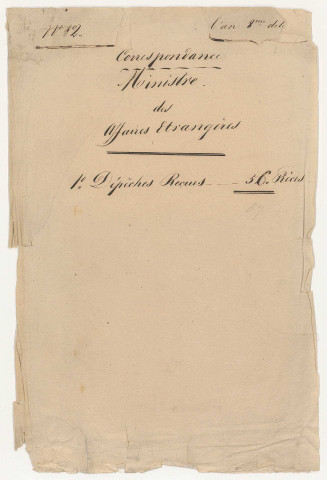 N° 12. L'an 8me
Correspondance
Ministre
des
Affaires Etrangères
1° Dépêches Recues - - - Pièces